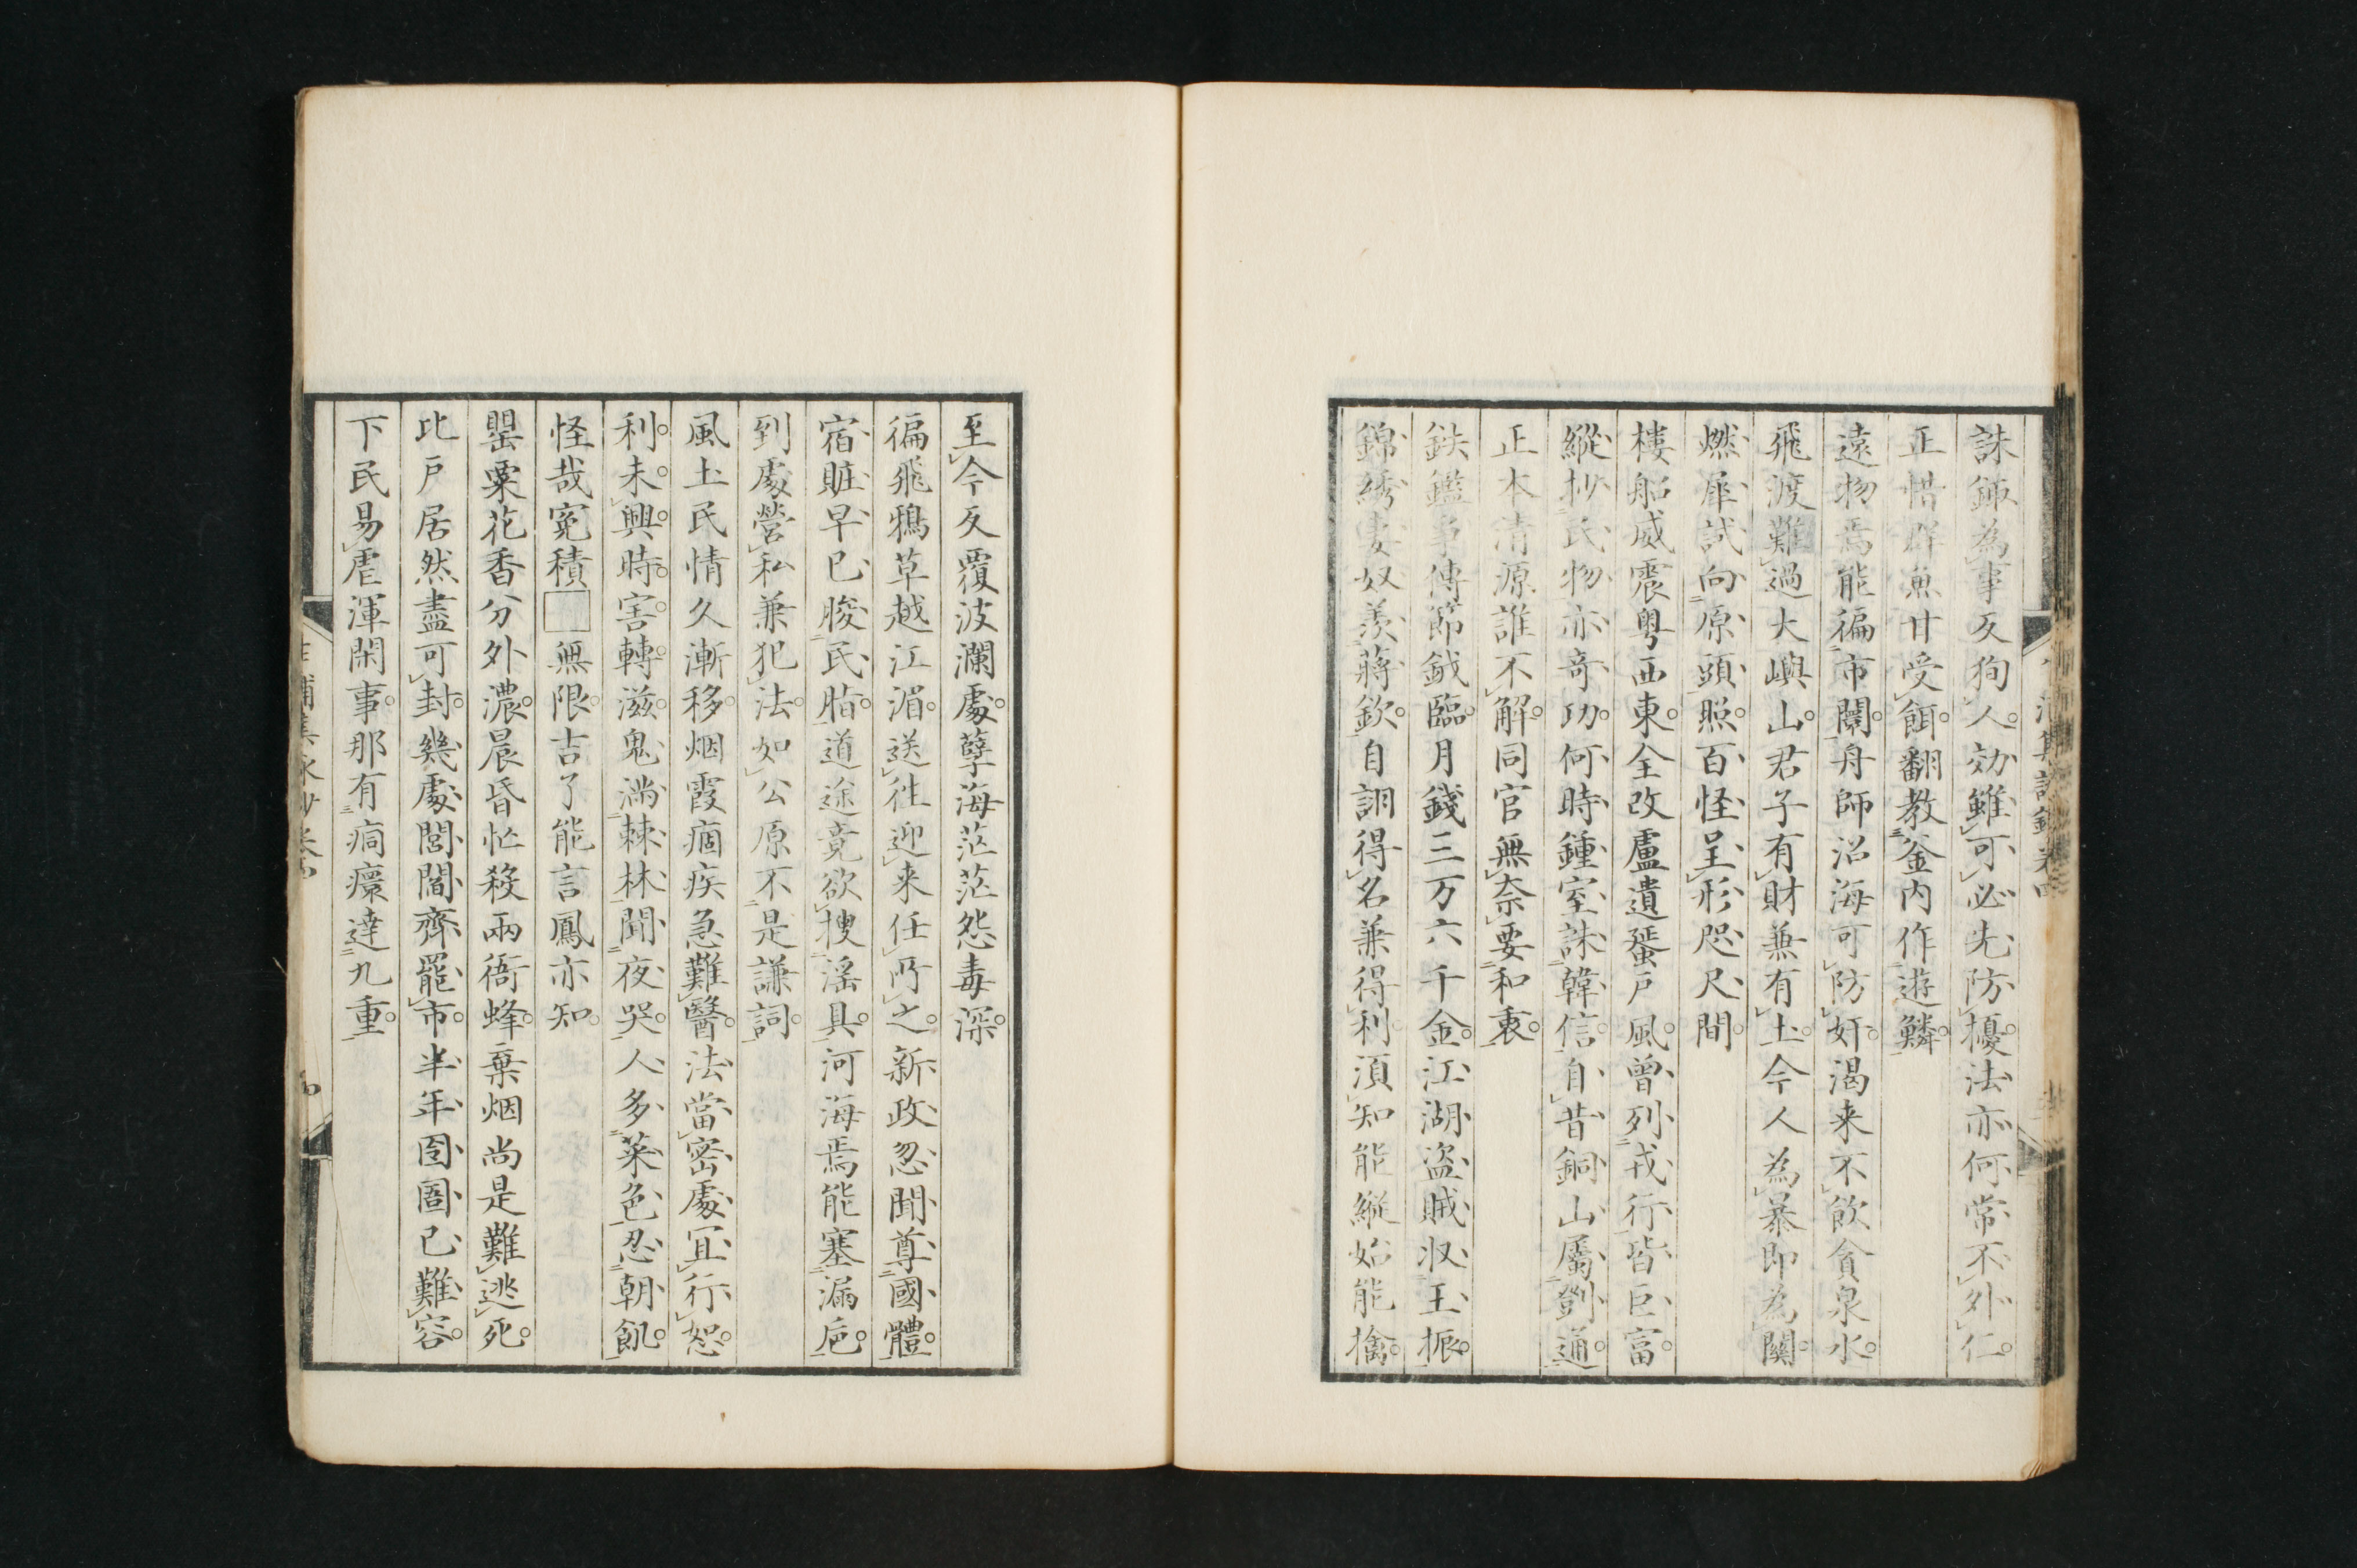 誅鋤為事反狥人効雖可必先防擾法亦何常不外仁
正惜群魚甘受餌翻教釜内作遊鱗
遠物焉能徧市闤舟師沿海可防奸渴来不飲貪泉水
飛渡難過大嶼山君子有財兼有土今人為暴即為關
燃犀試向原頭照百怪呈形咫尺間
樓船威震粤西東全改盧遺蜑戶風曾列戎行皆巨富
縱抄民物亦奇功何時鍾室誅韓信自昔銅山屬鄧通
正本清源誰不解同官無奈要和衷
鈇鑑爭傳節鉞臨月錢三万六千金江湖盜賊收王振
錦綉妻奴羨蔣欽自詡得名兼得利湏知能縱始能擒
至今反覆波瀾處孽海茫茫怨毒深
徧飛鴉草越江湄送往迎来任所之新政忽聞尊國體
宿賍早已朘民脂道途竟欲搜滛具河海焉能塞漏巵
到處營私兼犯法如公原不是謙詞
風土民情久漸移烟霞痼疾急難醫法當密處宜行恕
利未興時害轉滋鬼滿棘林聞夜哭人多菜色忍朝飢
怪哉寃積□無限吉了能言鳳亦知
罌粟花香分外濃晨昏忙殺兩衙蜂棄烟尚是難逃死
比戶居然盡可封幾處閭閻齊罷市半年囹圄已難容
下民易虐渾閑事那有痌瘝達九重